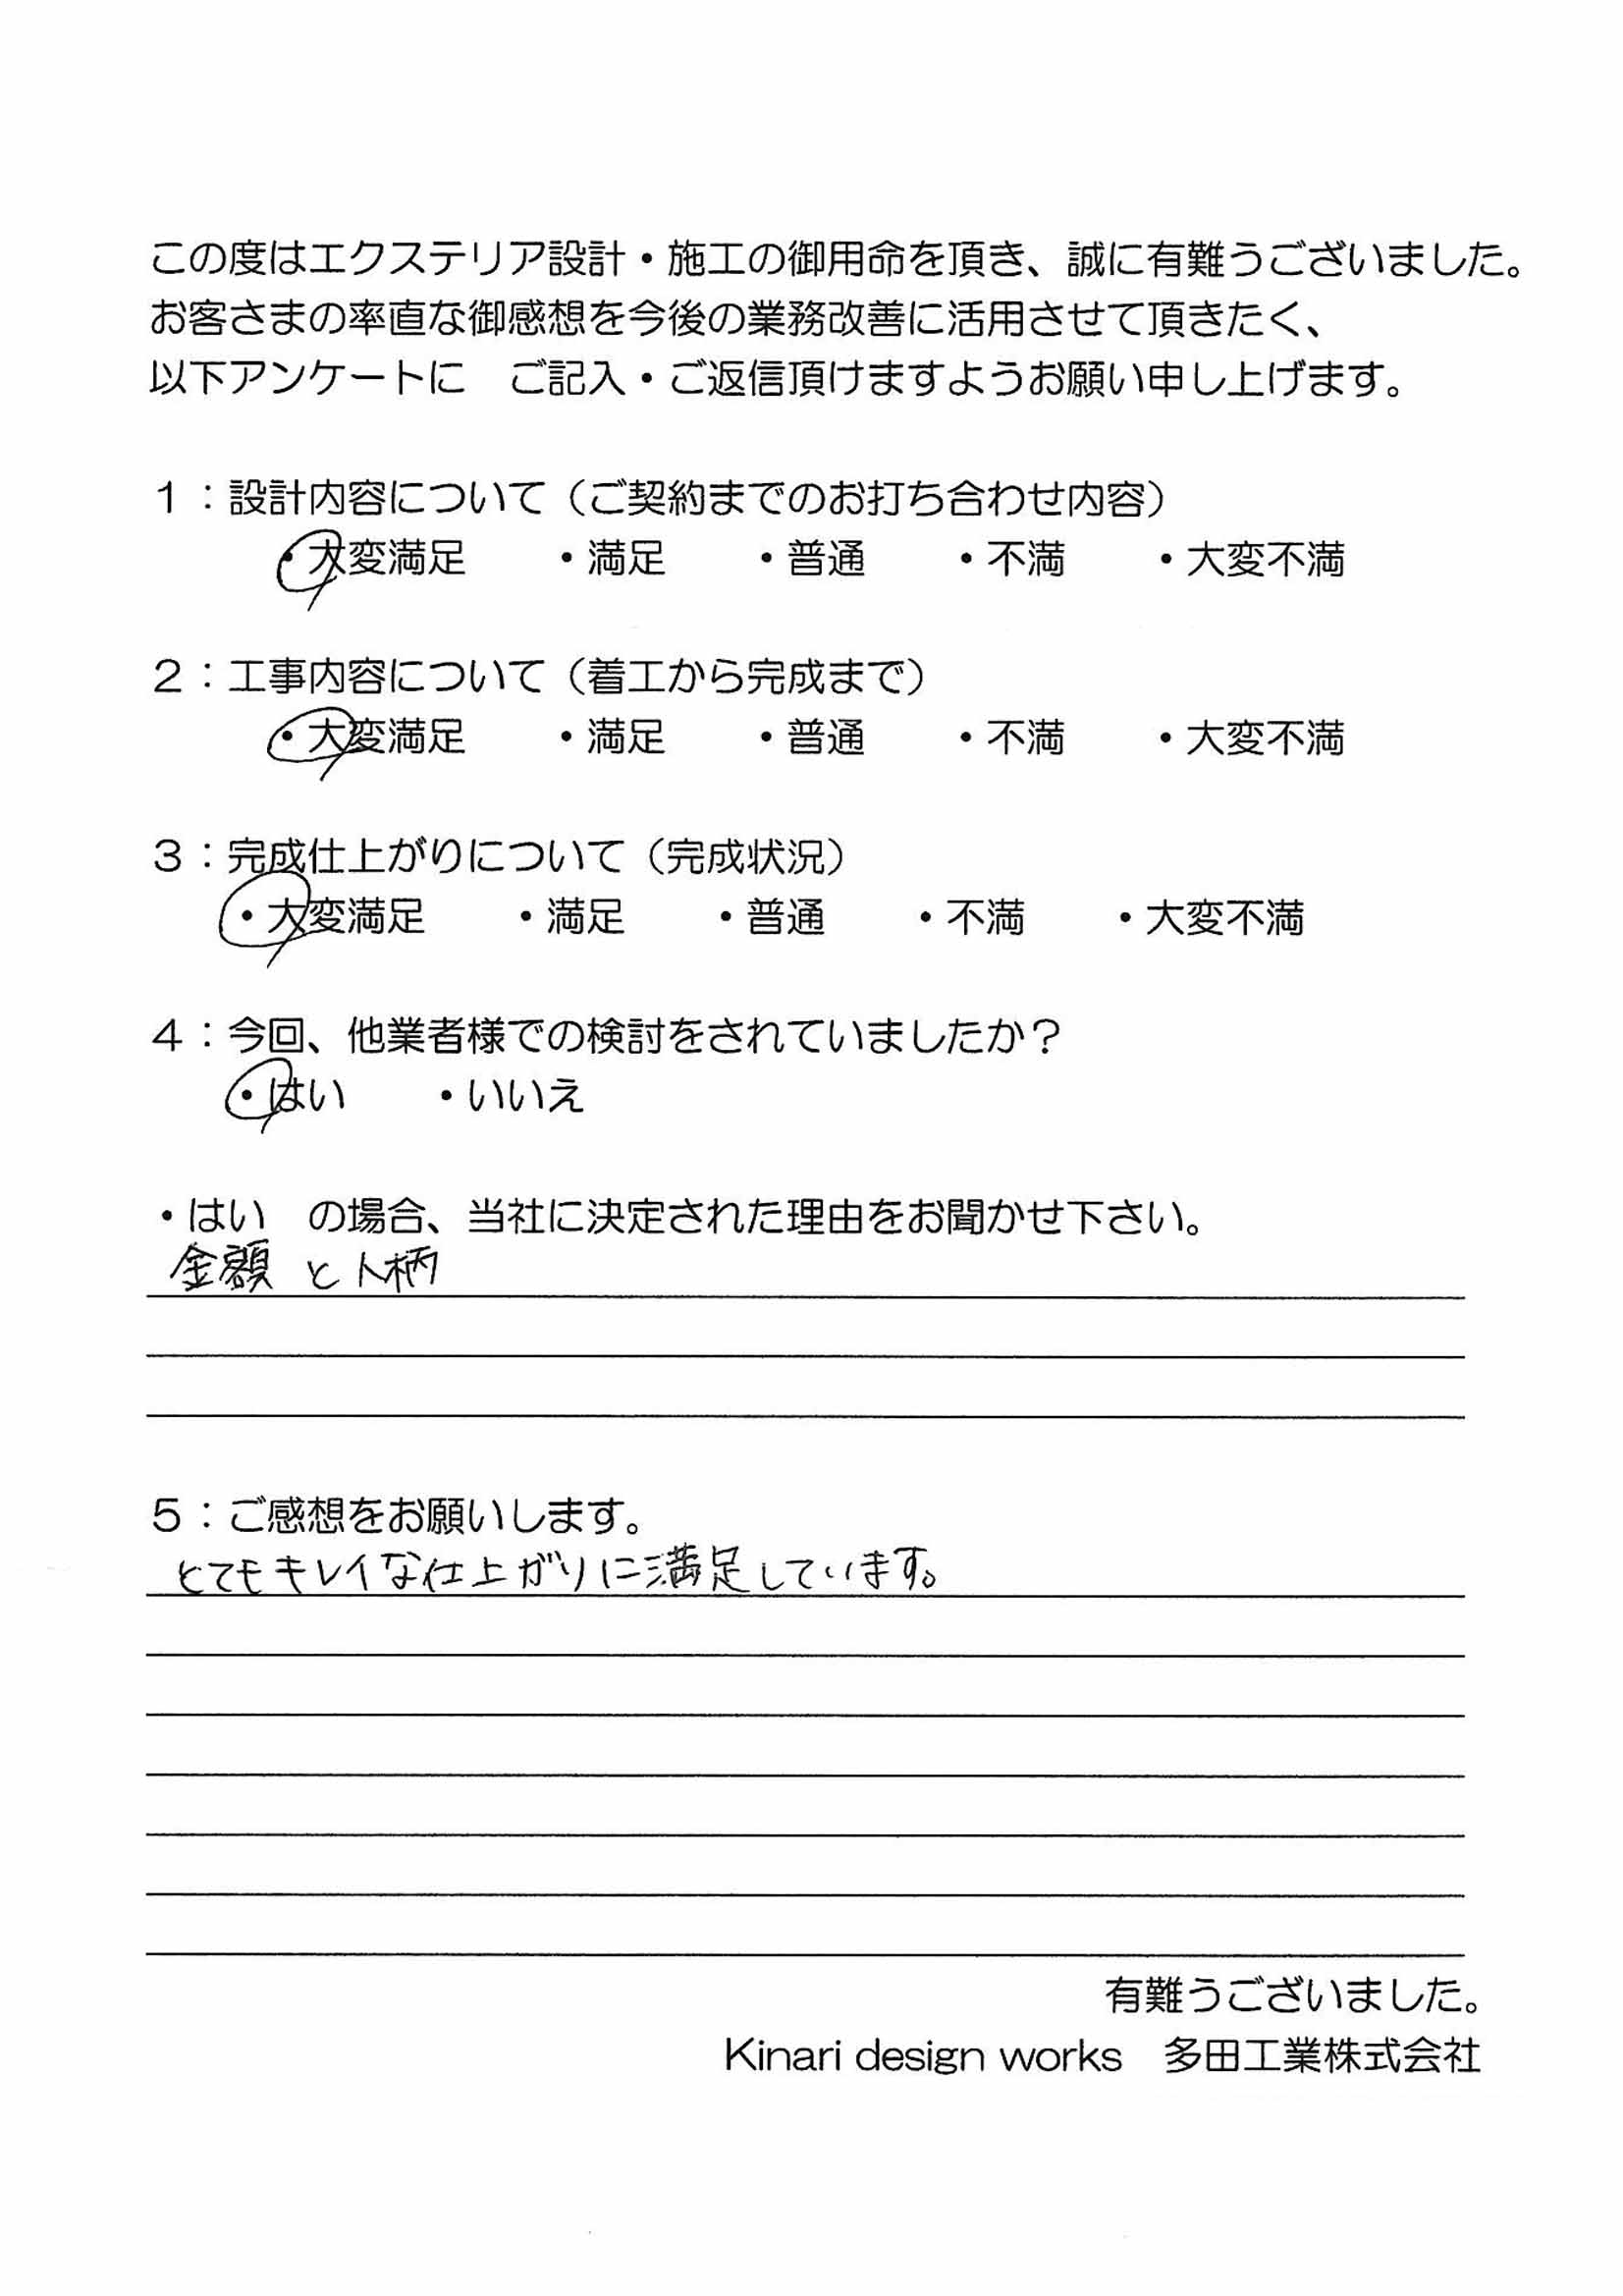 この度はエクステリア設計・施工の御用命を頂き、誠に有難うございました。
お客さまの率直な御感想を今後の業務改善に活用させて頂きたく、
以下アンケートに　ご記入・ご返信頂けますようお願い申し上げます。
１：設計内容について（ご契約までのお打ち合わせ内容）
・大変満足　　・満足　　・普通　　・不満　　・大変不満
２：工事内容について（着工から完成まで）
・大変満足　　・満足　　・普通　　・不満　　・大変不満
３：完成仕上がりについて（完成状況）
・大変満足　　・満足　　・普通　　・不満　　・大変不満
４：今回、他業者様での検討をされていましたか？
・はい　　・いいえ
・はい　の場合、当社に決定された理由をお聞かせ下さい。
金額 と 人柄
５：ご感想をお願いします。
とてもキレイな仕上がりに満足しています。
有難うございました。
Kinari design works　多田工業株式会社